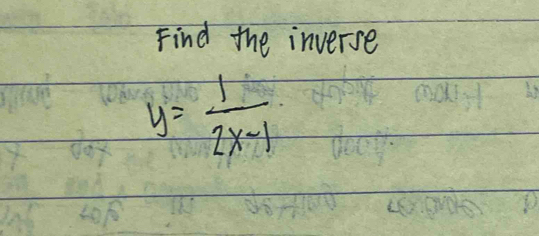 Find the inverse
y = 1/(2x-1)